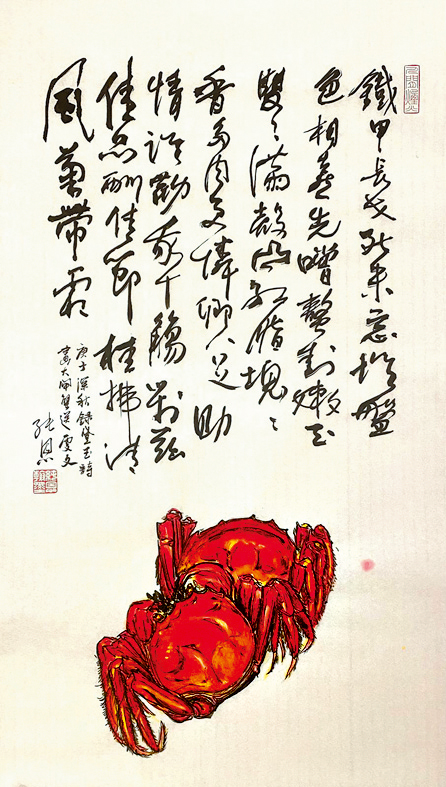 鐵甲長戈死未忘堆盤
色相喜先嚐螯封嫩玉
雙〻滿殼凸紅脂塊〻
香多肉更憐卿八足助
情誰勸我千觴對茲
佳品酬佳節桂拂清
風菊帶霜
庚子深秋錄黛玉詩
大閘蟹
張恩